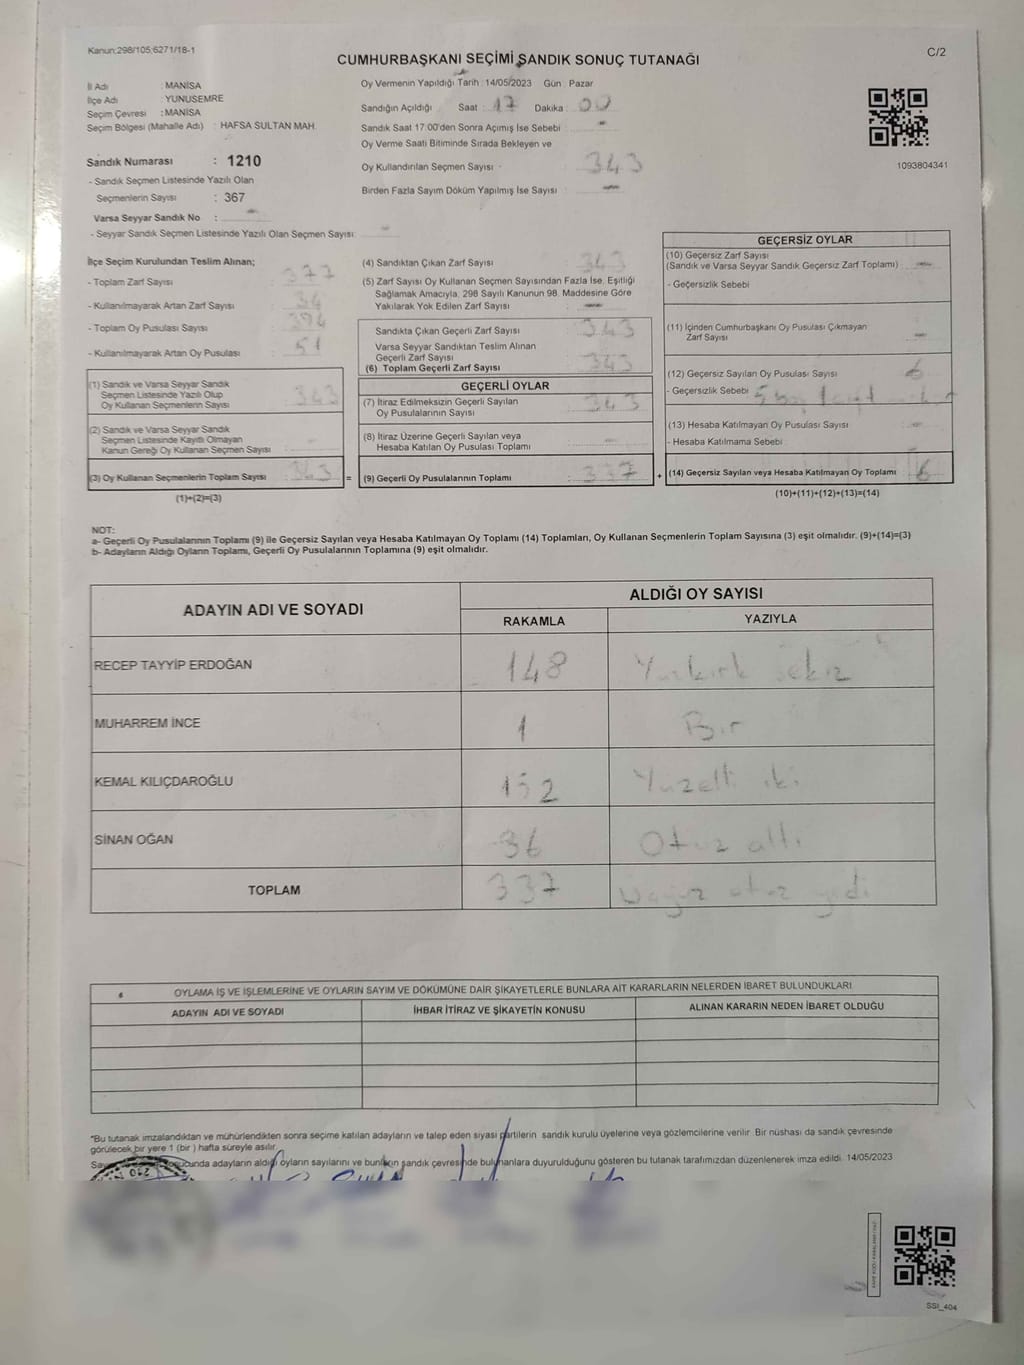 Kanun:298/105;6271/18-1
C/2
CUMHURBAŞKANI SEÇİMİ SANDIK SONUÇ TUTANAĞI
İl Adı : MANİSA
İlçe Adı : YUNUSEMRE
Seçim Çevresi : MANİSA
Seçim Bölgesi (Mahalle Adı) : HAFSA SULTAN MAH.
Sandık Numarası : 1210
- Sandık Seçmen Listesinde Yazılı Olan
Seçmenlerin Sayısı : 367
Varsa Seyyar Sandık No : -
- Seyyar Sandık Seçmen Listesinde Yazılı Olan Seçmen Sayısı: -
Oy Vermenin Yapıldığı Tarih : 14/05/2023 Gün : Pazar
Sandığın Açıldığı Saat : 17 Dakika : 00
Sandık Saat 17:00'den Sonra Açımış İse Sebebi : -
Oy Verme Saati Bitiminde Sırada Bekleyen ve
Oy Kullandırılan Seçmen Sayısı : 343
Birden Fazla Sayım Döküm Yapılmış İse Sayısı : -
1093804341
İlçe Seçim Kurulundan Teslim Alınan;
- Toplam Zarf Sayısı : 377
- Kullanılmayarak Artan Zarf Sayısı : 34
- Toplam Oy Pusulası Sayısı : 394
- Kullanılmayarak Artan Oy Pusulası : 51
(1) Sandık ve Varsa Seyyar Sandık
Seçmen Listesinde Yazılı Olup
Oy Kullanan Seçmenlerin Sayısı : 343
(2) Sandık ve Varsa Seyyar Sandık
Seçmen Listesinde Kayıtlı Olmayan
Kanun Gereği Oy Kullanan Seçmen Sayısı : -
(3) Oy Kullanan Seçmenlerin Toplam Sayısı : 343 =
(1)+(2)=(3)
(4) Sandıktan Çıkan Zarf Sayısı : 343
(5) Zarf Sayısı Oy Kullanan Seçmen Sayısından Fazla İse, Eşitliği
Sağlamak Amacıyla, 298 Sayılı Kanunun 98. Maddesine Göre
Yakılarak Yok Edilen Zarf Sayısı : -
Sandıkta Çıkan Geçerli Zarf Sayısı : 343
Varsa Seyyar Sandıktan Teslim Alınan
Geçerli Zarf Sayısı
(6) Toplam Geçerli Zarf Sayısı : 343
GEÇERLİ OYLAR
(7) İtiraz Edilmeksizin Geçerli Sayılan
Oy Pusulalarının Sayısı : 343
(8) İtiraz Üzerine Geçerli Sayılan veya
Hesaba Katılan Oy Pusulası Toplamı : -
(9) Geçerli Oy Pusulalarının Toplamı : 337 +
GEÇERSİZ OYLAR
(10) Geçersiz Zarf Sayısı
(Sandık ve Varsa Seyyar Sandık Geçersiz Zarf Toplamı) : -
- Geçersizlik Sebebi :
(11) İçinden Cumhurbaşkanı Oy Pusulası Çıkmayan
Zarf Sayısı : -
(12) Geçersiz Sayılan Oy Pusulası Sayısı : 6
- Geçersizlik Sebebi : 5 boş 1
(13) Hesaba Katılmayan Oy Pusulası Sayısı : -
- Hesaba Katılmama Sebebi :
(14) Geçersiz Sayılan veya Hesaba Katılmayan Oy Toplamı : 6
(10)+(11)+(12)+(13)=(14)
NOT:
a- Geçerli Oy Pusulalarının Toplamı (9) ile Geçersiz Sayılan veya Hesaba Katılmayan Oy Toplamı (14) Toplamları, Oy Kullanan Seçmenlerin Toplam Sayısına (3) eşit olmalıdır. (9)+(14)=(3)
b- Adayların Aldığı Oyların Toplamı, Geçerli Oy Pusulalarının Toplamına (9) eşit olmalıdır.
ADAYIN ADI VE SOYADI
ALDIĞI OY SAYISI
RAKAMLA YAZIYLA
RECEP TAYYİP ERDOĞAN 148 Yüzkırk sekiz
MUHARREM İNCE 1 Bir
KEMAL KILIÇDAROĞLU 152 Yüzelli iki
SİNAN OĞAN 36 Otuz altı
TOPLAM 337 Üçyüz otuz yedi
OYLAMA İŞ VE İŞLEMLERİNE VE OYLARIN SAYIM VE DÖKÜMÜNE DAİR ŞİKAYETLERLE BUNLARA AİT KARARLARIN NELERDEN İBARET BULUNDUKLARI
ADAYIN ADI VE SOYADI İHBAR İTİRAZ VE ŞİKAYETİN KONUSU ALINAN KARARIN NEDEN İBARET OLDUĞU
*Bu tutanak imzalandıktan ve mühürlendikten sonra seçime katılan adayların ve talep eden siyasi partilerin sandık kurulu üyelerine veya gözlemcilerine verilir. Bir nüshası da sandık çevresinde
görülecek bir yere 1 (bir ) hafta süreyle asılır.
adayların aldığı oyların sayılarını ve bunların sandık çevresinde bulunanlara duyurulduğunu gösteren bu tutanak tarafımızdan düzenlenerek imza edildi. 14/05/2023
SSI_404